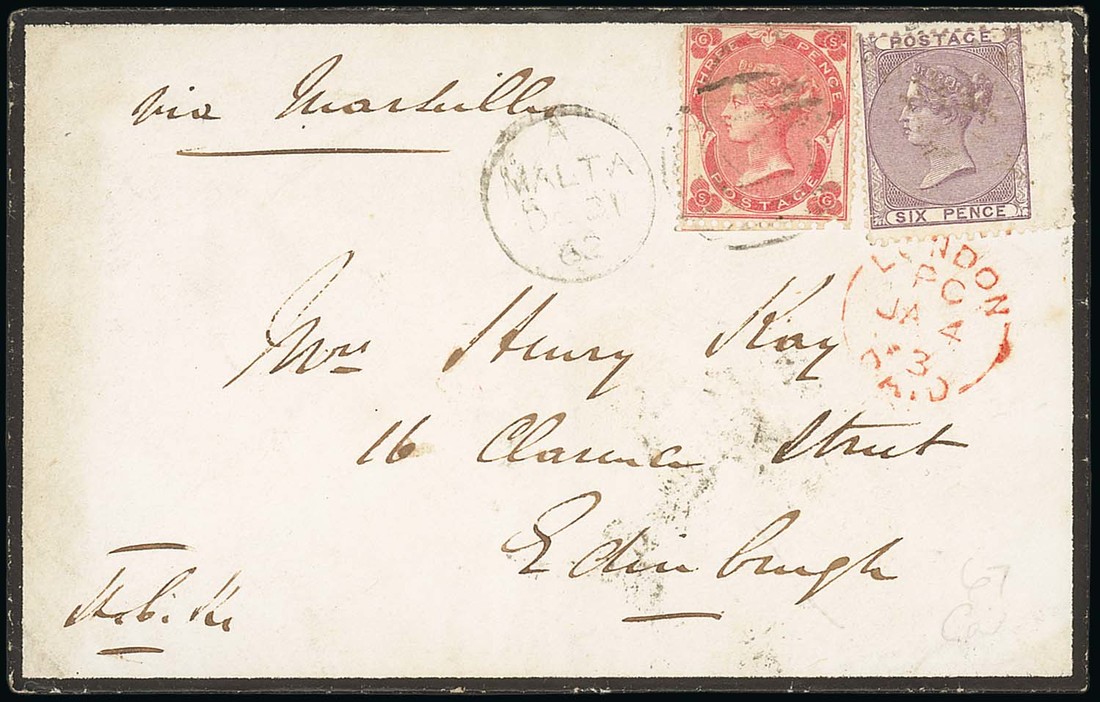 via Marseilles
THREE PENCE
POSTAGE
G S
S G
POSTAGE
SIX PENCE
A
MALTA
DE 31
62
LONDON
PC
JA
A
3
PAID
Mrs Henry Kay
16 Clarence Street
Edinburgh
67